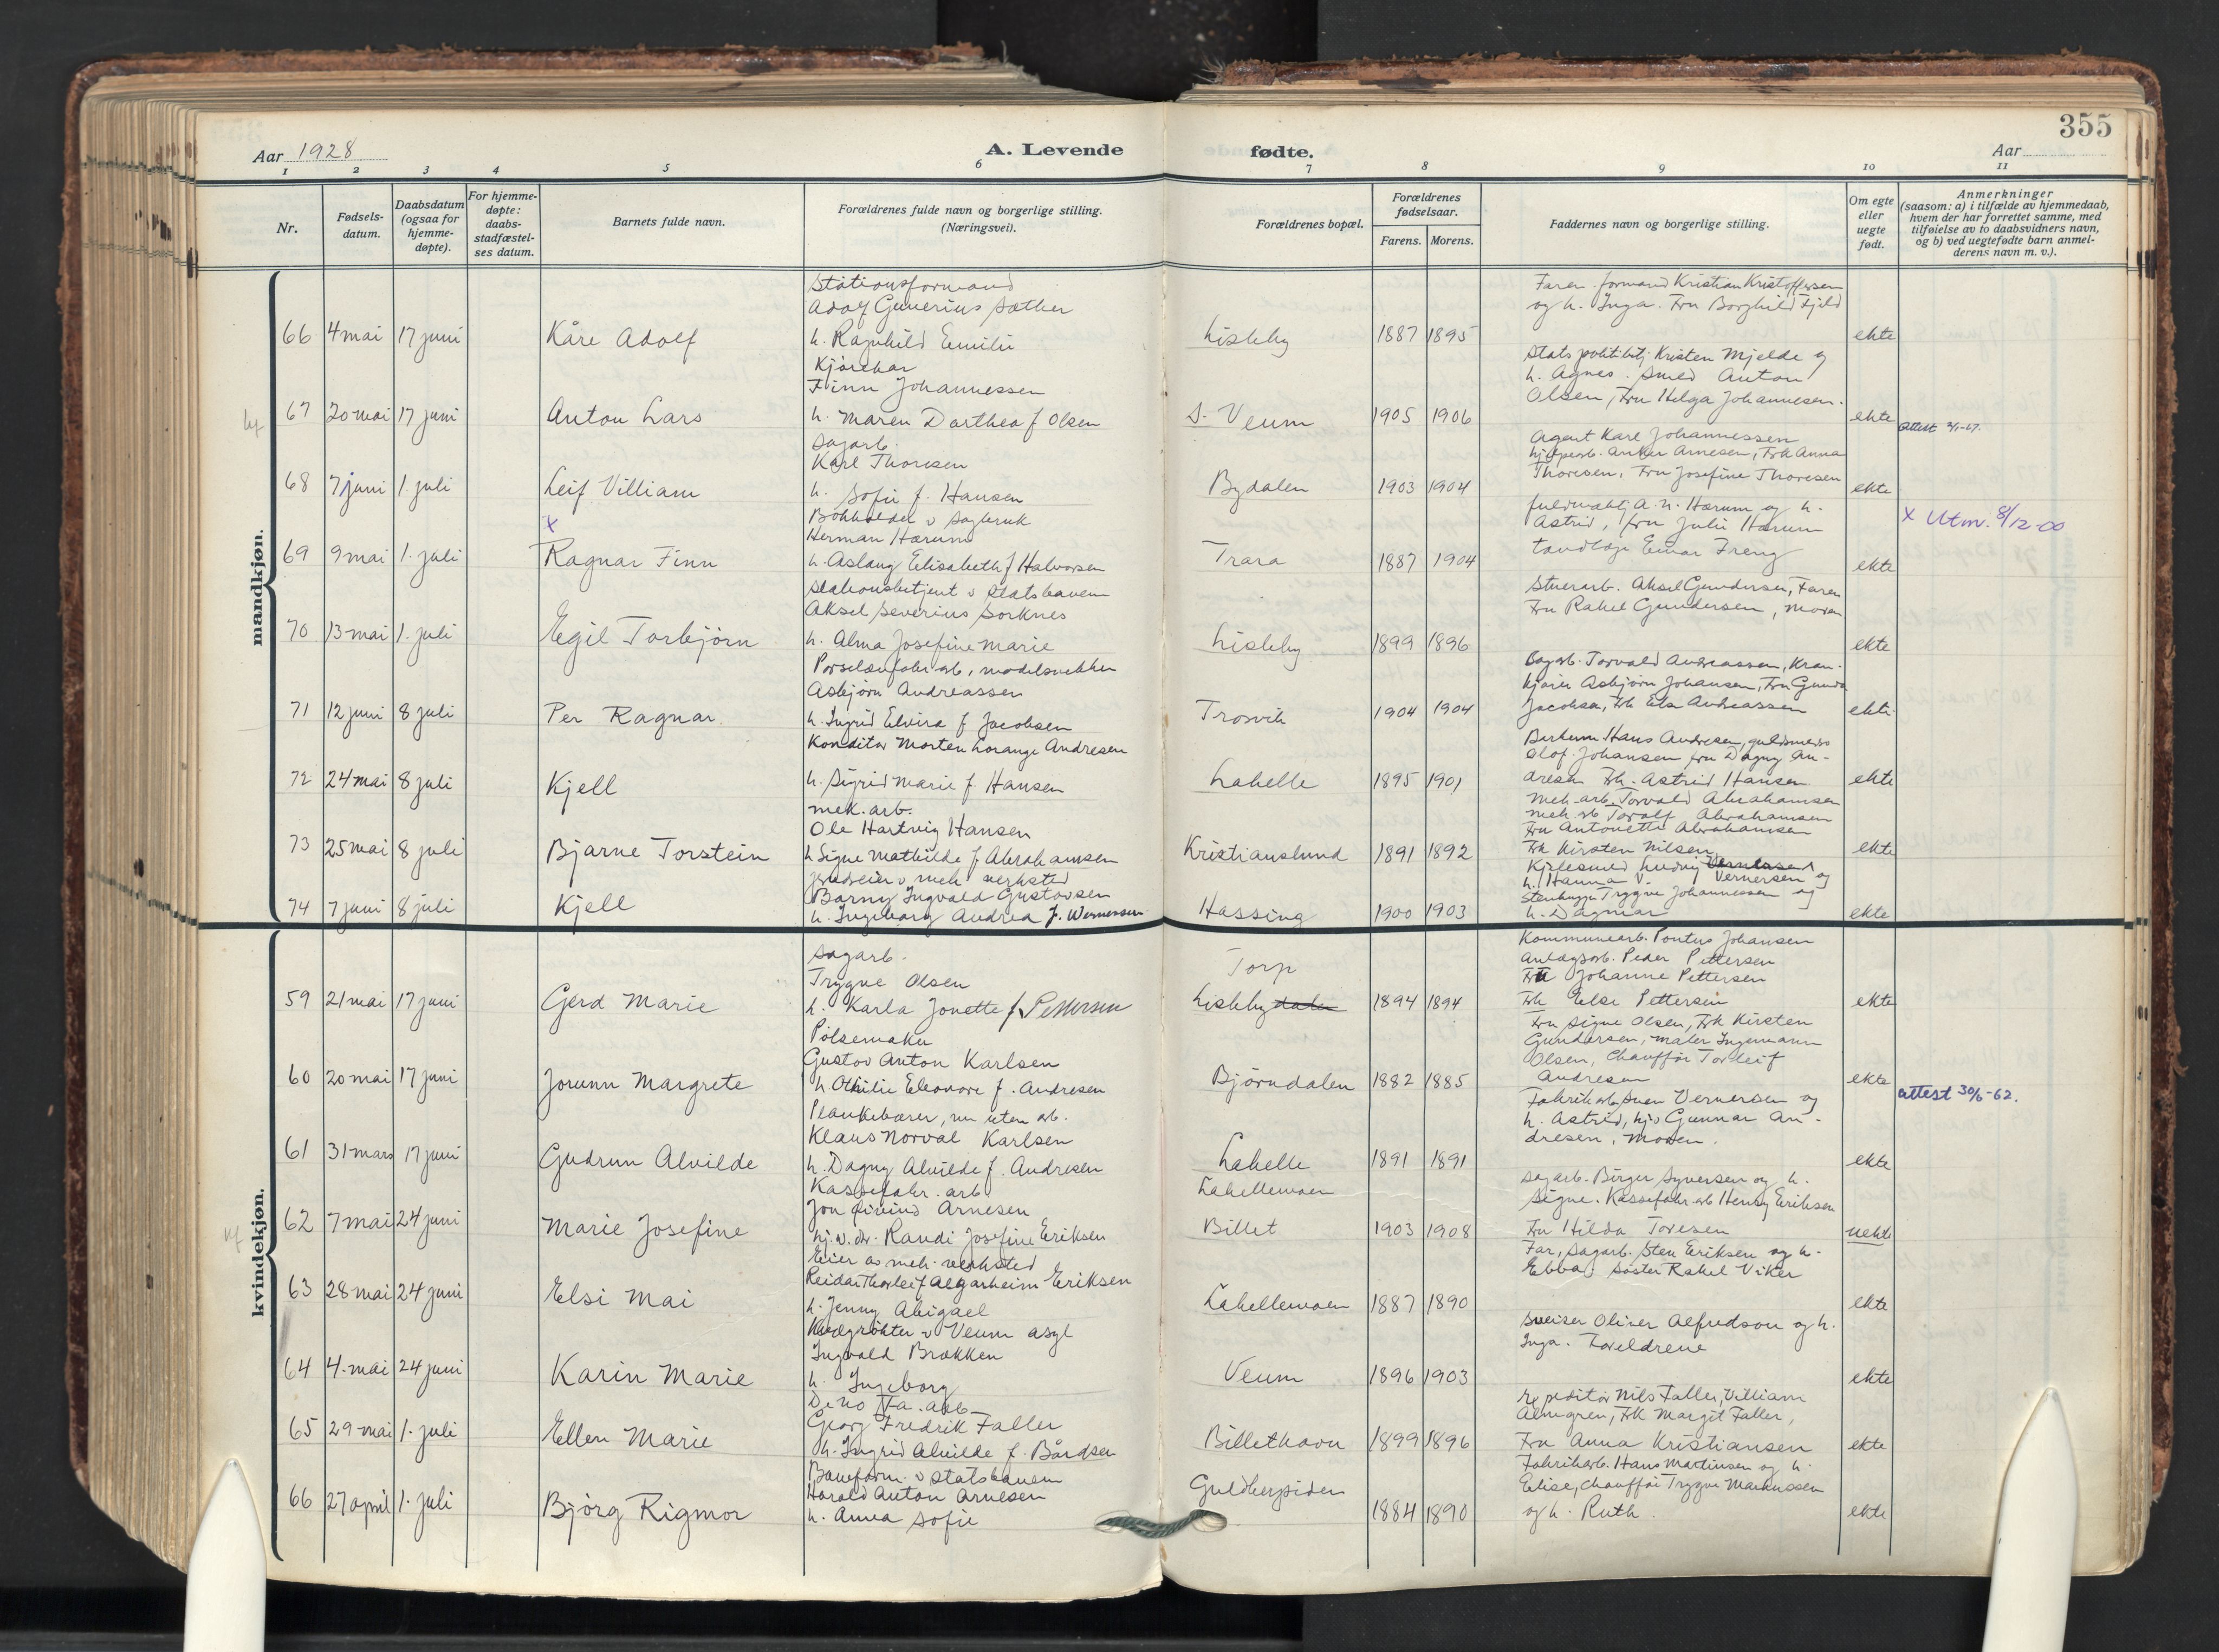 355
Aar 1928
A. Levende
fødte.
Aar
1 2 3 4 5 6 7 8 9 10 11
Nr.
Fødsels-
datum.
Daabsdatum
(ogsaa for
hjemme-
døpte).
For hjemme-
døpte:
daabs-
stadfæstel-
ses datum.
Barnets fulde navn.
Forældrenes fulde navn og borgerlige stilling.
(Næringsvei).
Forældrenes bopæl.
Forældrenes
fødselsaar.
Farens. Morens.
Faddernes navn og borgerlige stilling.
Om egte
eller
uegte
født.
Anmerkninger
(saasom: a) i tilfælde av hjemmedaab,
hvem der har forrettet samme, med
tilføielse av to daabsvidners navn,
og b) ved uegtefødte barn anmel-
derens navn m. v.).
mandkjøn.
66 4 mai 17 juni
Kåre Adolf
Stationsformand
Adolf Gunerius Sæther
h. Ragnhild Emilie
Lisleby
1887 1895
Faren. formand Kristian Kristoffersen
og h. Inga. Fru Borghild Fjeld
ekte
67 20 mai 17 juni
Anton Lars
Kjørekar
Finn Johannessen
h. Maren Dorthea f Olsen
S. Veum
1905 1906
Kristen Mjelde og
h. Agnes. Smed Anton
Olsen, Fru Helga Johannesen.
ekte
attest
68 7 juni 1. juli
Leif Villiam
Sagarb.
Karl Thoresen
h. Sofie f. Hansen
Bydalen
1903 1904
Agent Karl Johannessen
Anker Arnesen, Frk Anna
Thoresen, Fru Josefine Thoresen
ekte
69 9 mai 1. juli
x
Ragnar Finn
Bokholder v Sagbruk
Herman Hærum
h. Aslaug Elisabeth f Halvorsen
Trara
1887 1904
A. N. Hærum og h.
Astrid, fru Julie Hærum
tandlæge Einar Freng
ekte
x Utm. 8/12-00
70 13 mai 1. juli
Egil Torbjørn
Stationsbetjent v Statsbanen
Aksel Severius Sorknes
h. Alma Josefine Marie
Lisleby
1899 1896
Stuerarb. Aksel Gundersen, Faren
Fru Rakel Gundersen, Moren
ekte
71 12 juni 8 juli
Per Ragnar.
Porselænfabr arb, modelsnekker
Asbjørn Andreassen
h. Ingrid Elvira f Jacobsen
Trosvik
1904 1904
Torvald Andreassen, Kran-
kjører Asbjørn Johansen, Fru Gunda
Jacobsen, Frk Else Andreassen
ekte
72 24 mai 8 juli
Kjell
Konditor Morten Lorange Andresen
h. Sigrid Marie f. Hansen
Labelle
1895 1901
Hans Andresen, guldsmed
Olof Johansen fru Dagny An-
dresen Frk. Astrid Hansen
ekte
73 25 mai 8 juli
Bjarne Torstein
mek. arb.
Ole Hartvig Hansen
h Signe Mathilde f Abrahamsen
Kristianslund
1891 1892
Mek. arb. Torvald Abrahamsen
mek arb Torolf Abrahamsen
Fru Antonette Abrahamsen
Frk Kirsten Nilsen
ekte
74 7 juni 8 juli
Kjell
v mek verksted
Barny Ingvald Gustavsen
h. Ingeborg Andrea f. Wernersen
Hassing
1900 1903
Kjelesmed Ludvig Vernersen
h. Hanna V. Vernersen og
Stenhugger Trygve Johannessen og
h. Dagmar
ekte
kvindekjøn.
59 21 mai 17 juni
Gerd Marie
Sagarb.
Trygve Olsen
h. Karla Jonette f. Pettersen
Torp
Lisleby
1894 1894
Kommunearb. Pontus Johansen
Anlægsarb. Peder Pettersen
Fru Johanne Pettersen
Frk Else Pettersen
ekte
60 20 mai 17 juni
Jorunn Margrete
Pølsemaker
Gustav Anton Karlsen
h. Othilie Eleonore f. Andresen
Bjørndalen
1882 1885
Fru Signe Olsen, Frk Kirsten
Gundersen, maler Ingemann
Olsen, Chauffør Torleif
Andresen
ekte
attest 30/5-62.
61 31 mars 17 juni
Gudrun Alvilde
Plankebærer, nu uten arb.
Klaus Norval Karlsen
h. Dagny Alvilde f. Andresen
Labelle
1891 1891
Fabrikarb. Sven Vernersen og
h. Astrid, Gunnar An-
dresen, Moren.
ekte
62 7 mai 24 juni
Marie Josefine
Kassefabr. arb
Jon Øivind Arnesen
Hj. v. dtr. Randi Josefine Eriksen
Labellemoen
Billet
1903 1908
Sagarb. Birger Syversen og h.
Signe. Kassefabr arb Henry Eriksen
Fru Hilda Toresen
uekte
63 28 mai 24 juni
Elsi Mai
Eier av mek. verksted
Reidar Thorleif Algarheim Eriksen
h. Jenny Abigael
Labellemoen
1887 1890
Far, Sagarb. Sten Eriksen og h.
Ebba. Søster Rakel Viker
ekte
64 4. mai 24 juni
Karin Marie
v Veum asyl
Ingvald Brækken
h. Ingeborg
Veum
1896 1903
Sveiser Oliver Alfredson og h.
Inga. Foreldrene
ekte
65 29 mai 1. juli
Ellen Marie
De No Fa. arb
Georg Fredrik Faller
h. Ingrid Alvilde f. Bårdsen
Billethavn
1899 1896
Expeditør Nils Faller, Villiam
Almgren, Frk Margit Faller,
Fru Anna Kristiansen
ekte
66 27 april 1. juli
Bjørg Rigmor
Baneform. v Statsbanen
Harald Anton Arnesen
h. Anna Sofie
Guldbergsiden
1884 1890
Fabrikarb. Hans Martinsen og h.
Elise, Chauffør Trygve Markussen
og h. Ruth.
ekte